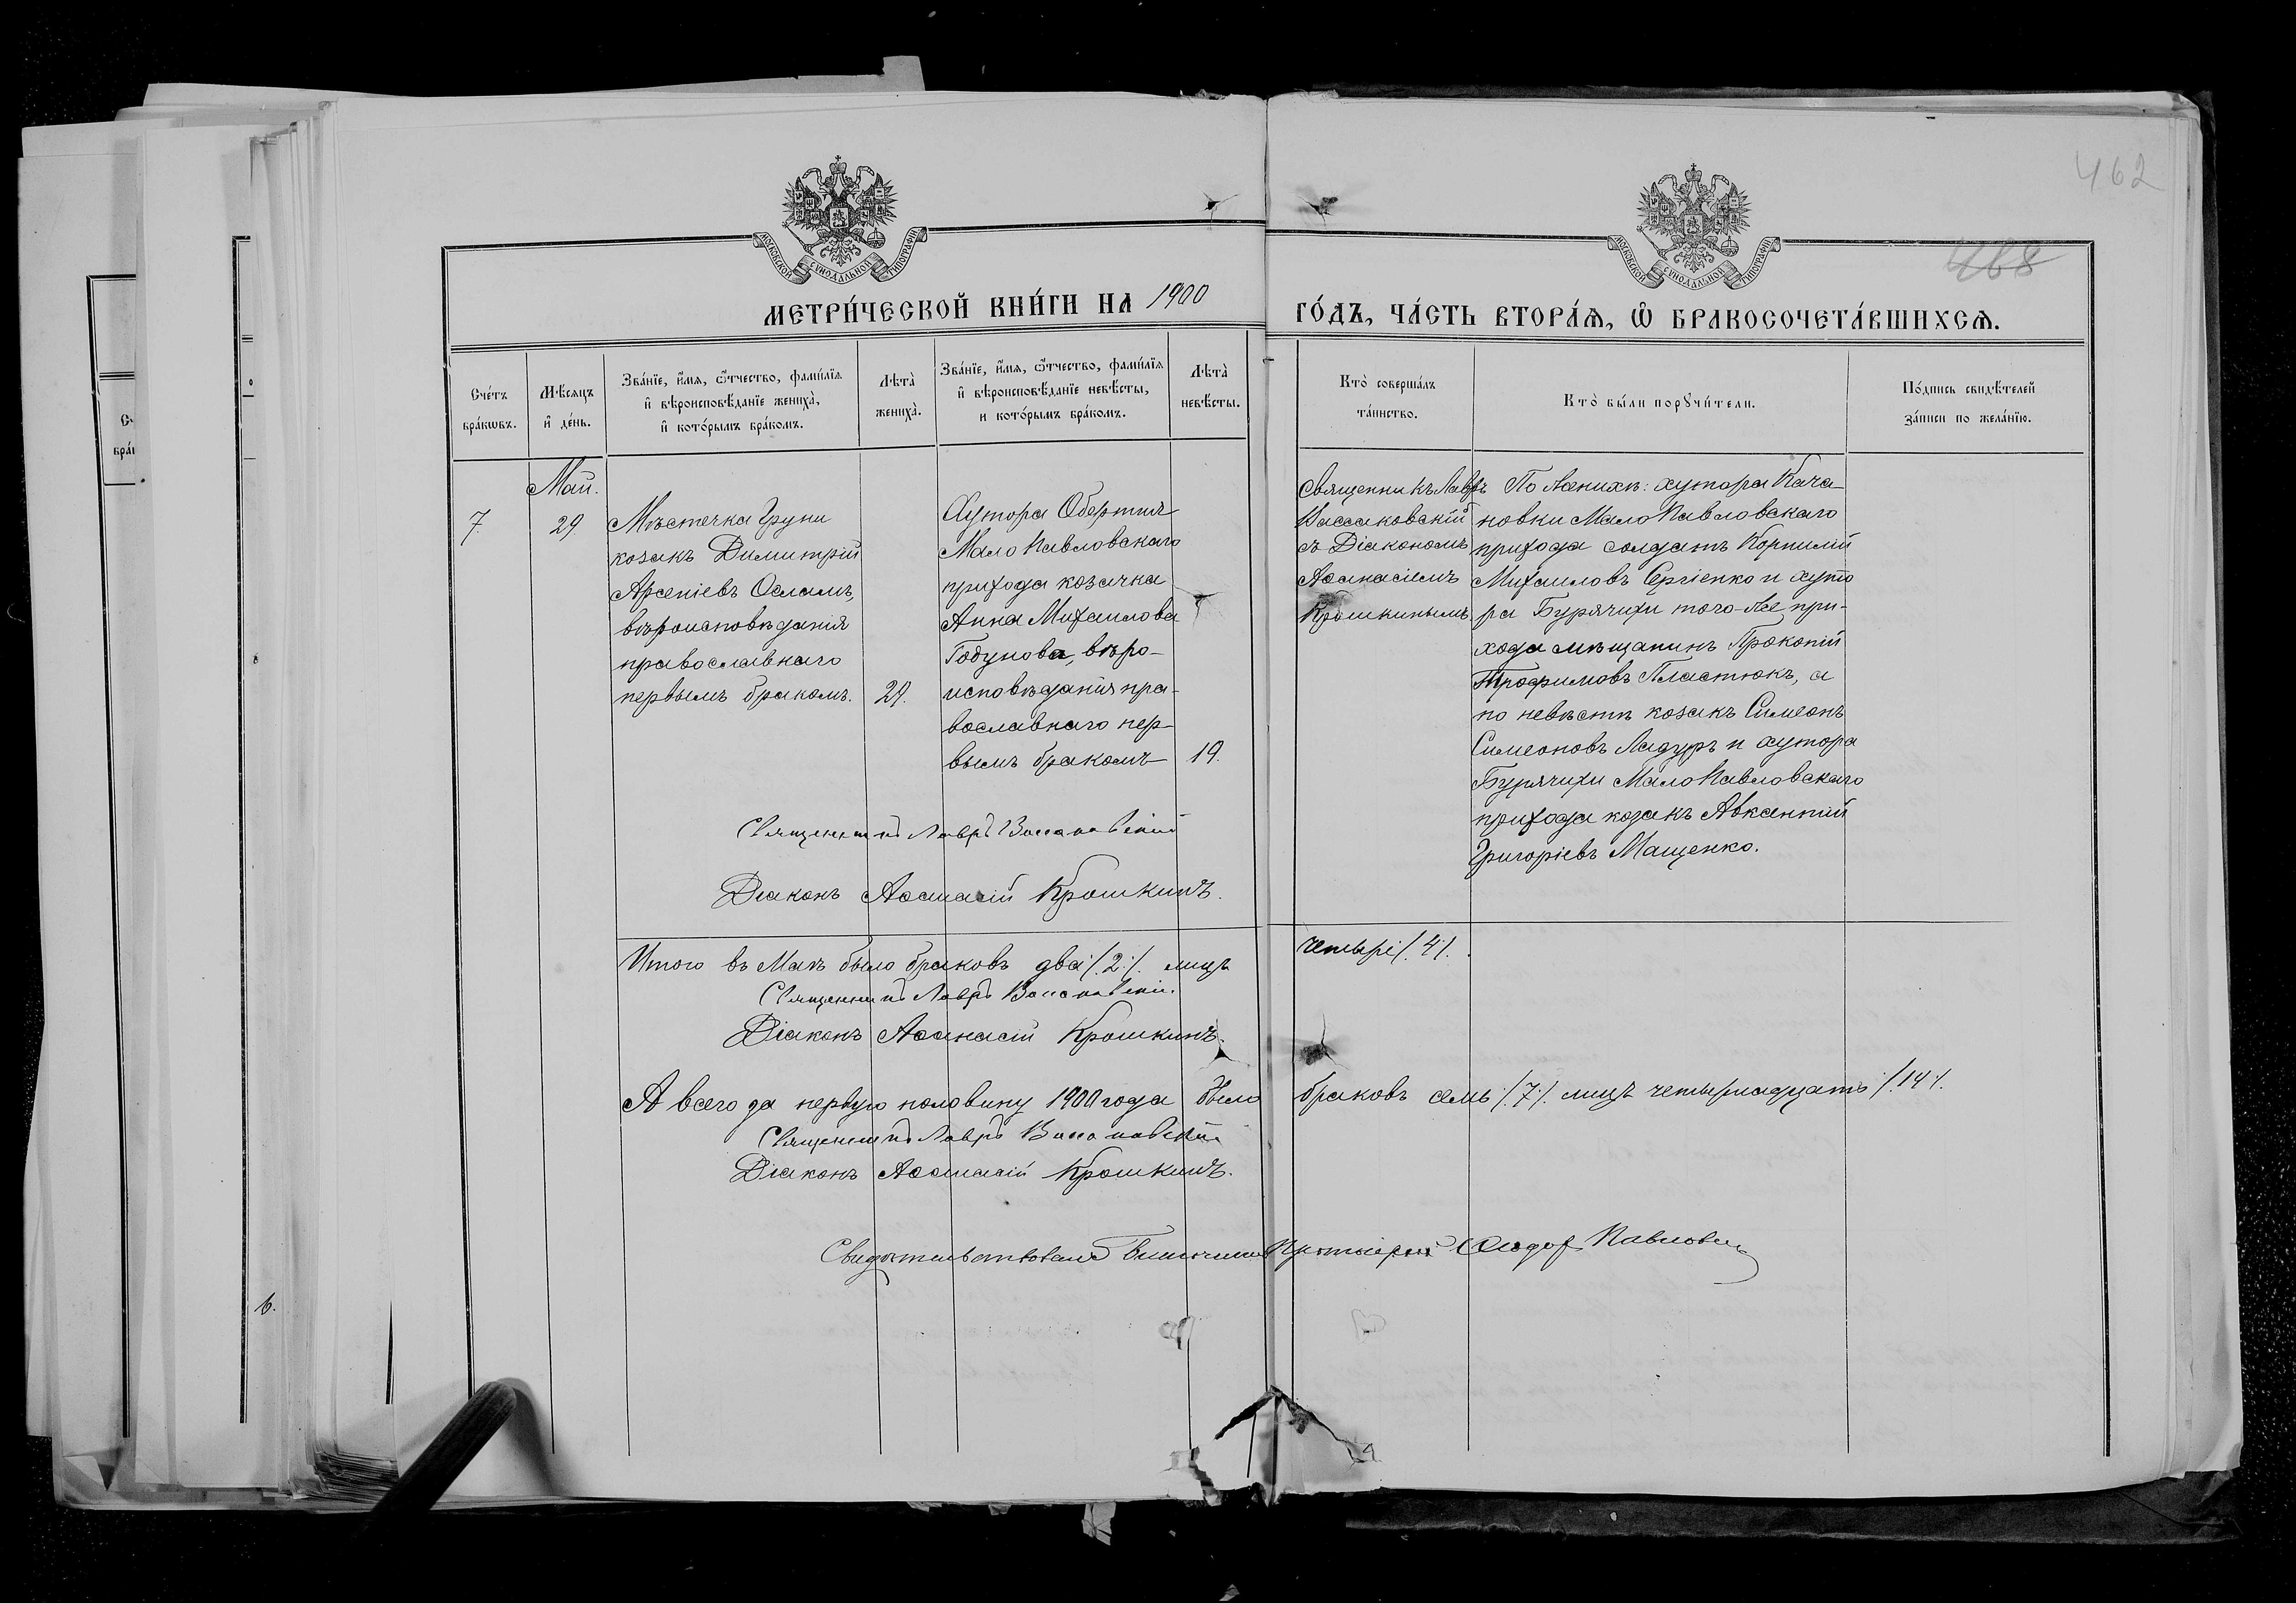 462
468
МОСКОВСКОЙ СѴНОДАЛЬНОЙ ТИПОГРАФІИ
МОСКОВСКОЙ СѴНОДАЛЬНОЙ ТИПОГРАФІИ
МЕТРИ́ЧЕСКОЙ КНИ́ГИ НА 1900
ГО́ДЪ, ЧА́СТЬ ВТОРА́Ѧ, Ѡ҆ БРАКОСОЧЕТА́ВШИХСѦ.
Сче́тъ
бра́кѡвъ.
Мѣ́сѧцъ
и҆ де́нь.
Зва́нїе, и҆́мѧ, ѻ҆́тчество, фамѝлїѧ
и҆ вѣроисповѣ́данїе жениха̀,
и҆ кото́рымъ бра́комъ.
Лѣта̀
жениха̀.
Зва́нїе, и҆́мѧ, ѻ҆́тчество, фамѝлїѧ
и҆ вѣроисповѣ́данїе невѣ́сты,
и кото́рымъ бра́комъ.
Лѣта̀
невѣ́сты.
Кто̀ соверша́лъ
та́инство.
Кто̀ бы́ли порꙋчи́тели.
По́дпись свидѣ́телей
за́писи по жела́нїю.
Май.
7.
29.
Мѣстечка Груни
козакъ Димитрій
Арсеніевъ Осламъ,
вѣроисповѣданія
православнаго
первымъ бракомъ.
29.
Хутора Обертня
Мало Павловскаго
прихода козачка
Анна Михаилова
Годунова, вѣро-
исповѣданія пра-
вославнаго пер-
вымъ бракомъ
19.
Священникъ Лавръ
Вассаковскій
съ Діакономъ
Аѳанасіемъ
Крошкинымъ
По женихѣ: хутора Кача-
новки Мало Павловскаго
прихода солдатъ Корнилій
Михаиловъ Сергіенко и хуто
ра Бурячихи того-же при-
хода мѣщанинъ Прокопій
Трофимовъ Пластюкъ, а
по невѣстѣ козакъ Симеонъ
Симеоновъ Ладуръ и хутора
Бурячихи Мало Павловскаго
прихода козакъ Авксентій
Григоріевъ Мащенко.
Священникъ Лавръ Вассаковскій
Діаконъ Аѳанасій Крошкинъ.
Итого въ Маѣ было браковъ два /.2./. лицъ четыре /.4./.
Священникъ Лавръ Вассаковскій.
Діаконъ Аѳанасій Крошкинъ.
А всего за первую половину 1900 года было браковъ семь /.7./. лицъ четырнадцать /.14./.
Священникъ Лавръ Вассаковскій
Діаконъ Аѳанасій Крошкинъ.
Свидѣтельствовалъ Благочинный Протоіерей Ѳеодоръ Павловъ
6.